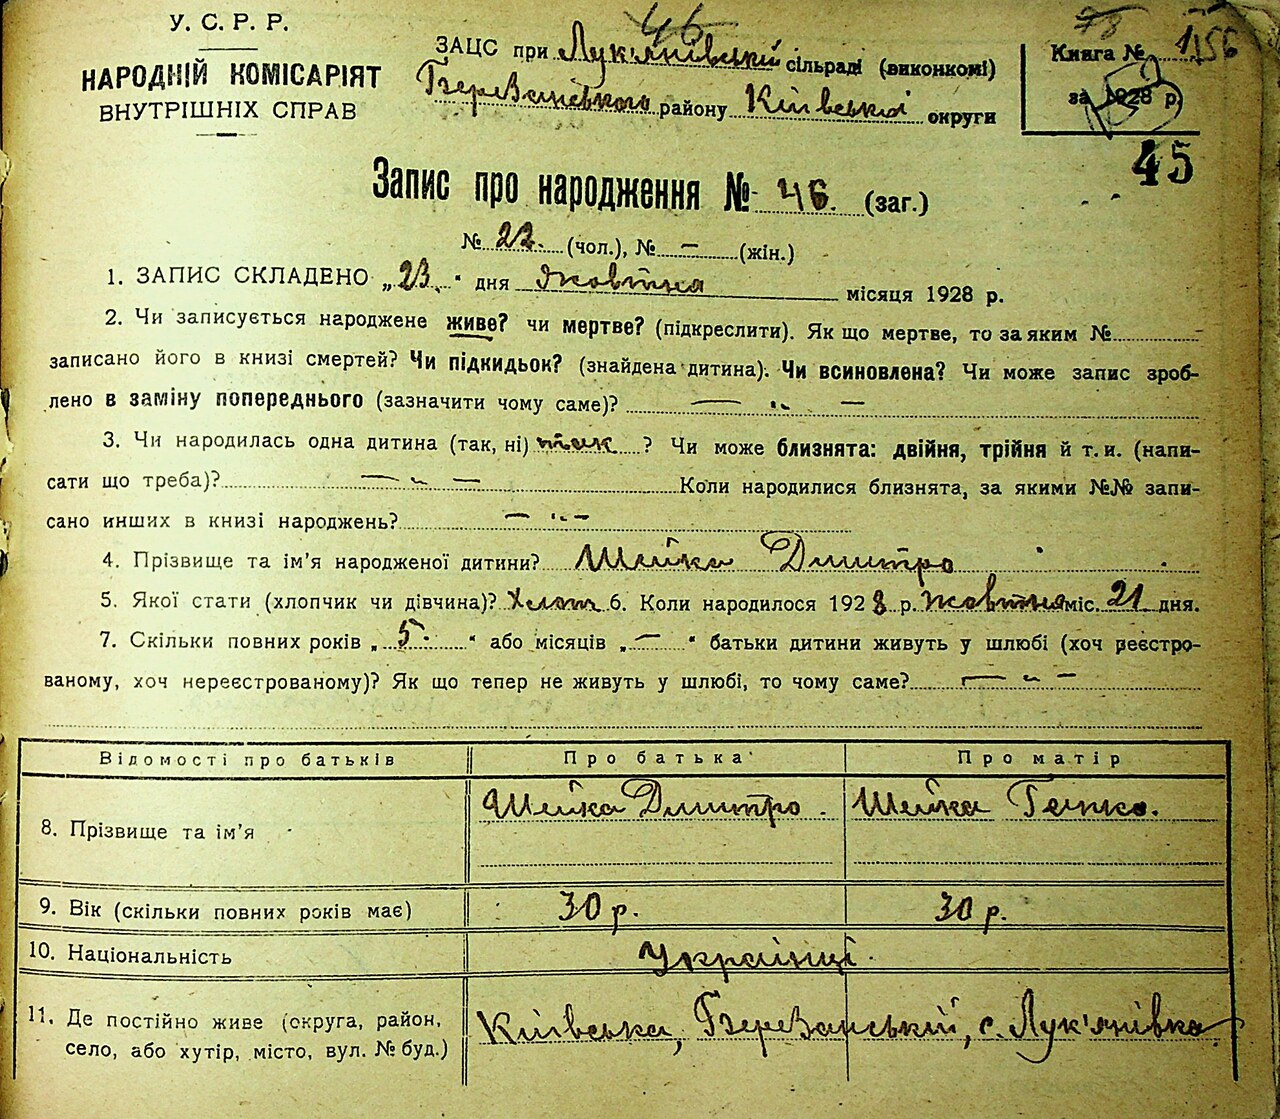 У. С. Р. Р.
НАРОДНІЙ КОМІСАРІЯТ
ВНУТРІШНІХ СПРАВ
46
ЗАЦС при Лук'янівській сільраді (виконкомі)
Березанського району Київської округи
78
Книга № 1 156
за 1928 р.
45
Запис про народження № 46. (заг.)
№ 22. (чол.), № — (жін.)
1. ЗАПИС СКЛАДЕНО „23." дня Жовтня місяця 1928 р.
2. Чи записується народжене живе? чи мертве? (підкреслити). Як що мертве, то за яким №
записано його в книзі смертей? Чи підкидьок? (знайдена дитина). Чи всиновлена? Чи може запис зроб-
лено в заміну попереднього (зазначити чому саме)? — „ —
3. Чи народилась одна дитина (так, ні) так ? Чи може близнята: двійня, трійня й т. и. (напи-
сати що треба)? — „ — Коли народилися близнята, за якими №№ запи-
сано инших в книзі народжень? — „ —
4. Прізвище та ім'я народженої дитини? Шейка Дмитро
5. Якої стати (хлопчик чи дівчина)? Хлоп. 6. Коли народилося 1928 р. жовтня міс. 21 дня.
7. Скільки повних років „ 5. " або місяців „ — " батьки дитини живуть у шлюбі (хоч реєстро-
ваному, хоч нереєстрованому)? Як що тепер не живуть у шлюбі, то чому саме? — „ —
Відомості про батьків Про батька Про матір
8. Прізвище та ім'я Шейка Дмитро. Шейка
9. Вік (скільки повних років має) 30 р. 30 р.
10. Національність Українці.
11. Де постійно живе (округа, район, Київська, Березанський, с. Лук'янівка
село, або хутір, місто, вул. № буд.)